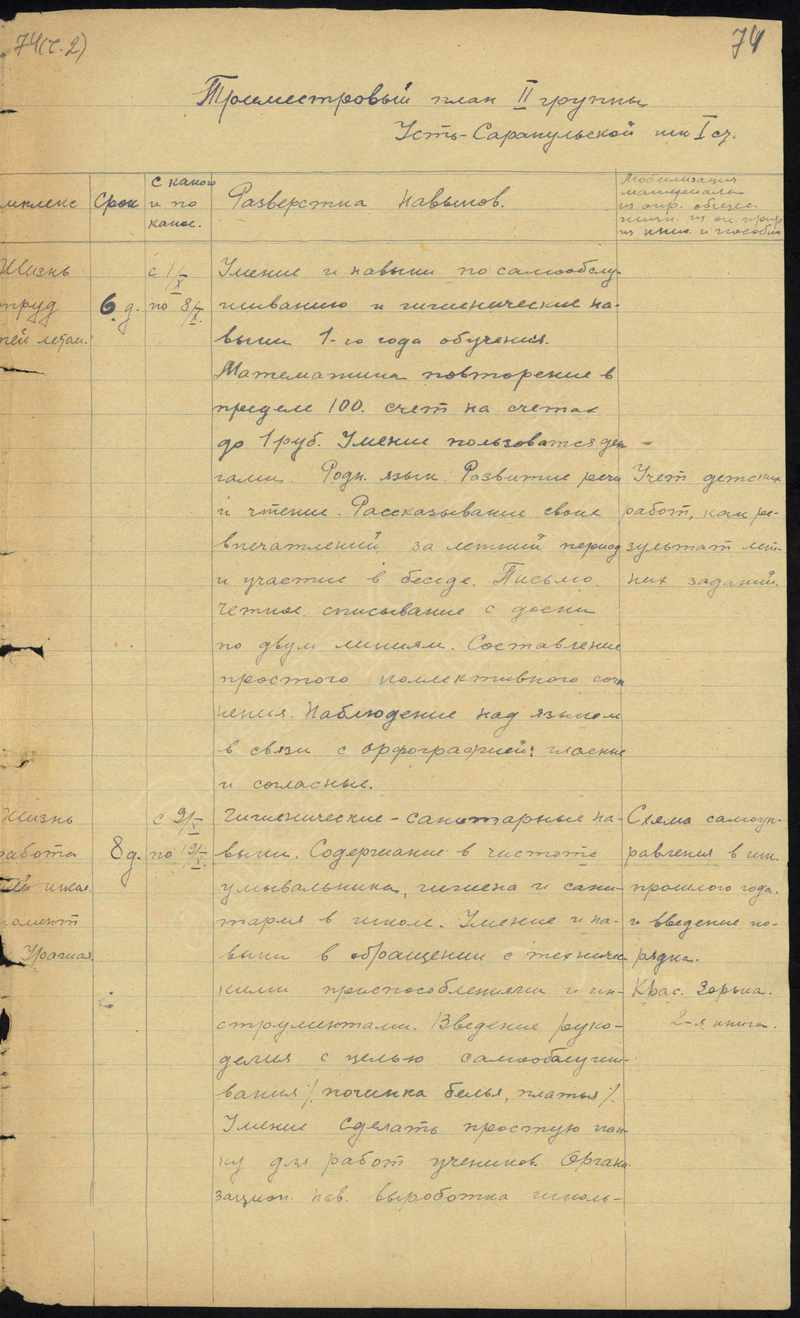 74(с.2)
74
Триместровый план II группы
Усть-Сарапульской шк I ст.
Срок
с каког
и по
какое.
Разверстка навыков.
Мобилизация
материала
из окр. общес.
из книг и пособий
Жизнь
труд
летом.
6 д.
с 1/X
по 8/X.
Умение и навыки по самообслу-
живанию и гигиенические на-
выки 1-го года обучения.
Математика повторение в
пределе 100. счет на счетах
до 1 руб. Умение пользоватся ден
гами. Родн. язык. Развитие речи
и чтение. Рассказывание своих
впечатлений за летний период
и участие в беседе. Письмо.
Четкое списывание с доски
по двум линиям. Составление
простого коллективного сочи
нения. Наблюдение над языком
в связи с орфографией: гласные
и согласные.
Учет детских
работ, как ре-
зультат лет-
них заданий.
Жизнь
работа
Урожая
8 д.
с 9/X
по 19/X.
Гигиенические-санитарные на-
выки. Содержание в чистоте
умывальника, гигиена и сани-
тария в школе. Умение и на-
выки в обращении с техниче
кими приспособлениями и ин-
струментами. Введение руко-
делия с целью самообслужи-
вания /починка белья, платья/.
Умение сделать простую пап
ку для работ учеников. Органи
зацион. нав. выработка школь-
Схема самоуп-
равления в шк.
прошлого года.
и введение по-
рядка.
Крас. Зорька.
2-я книга.